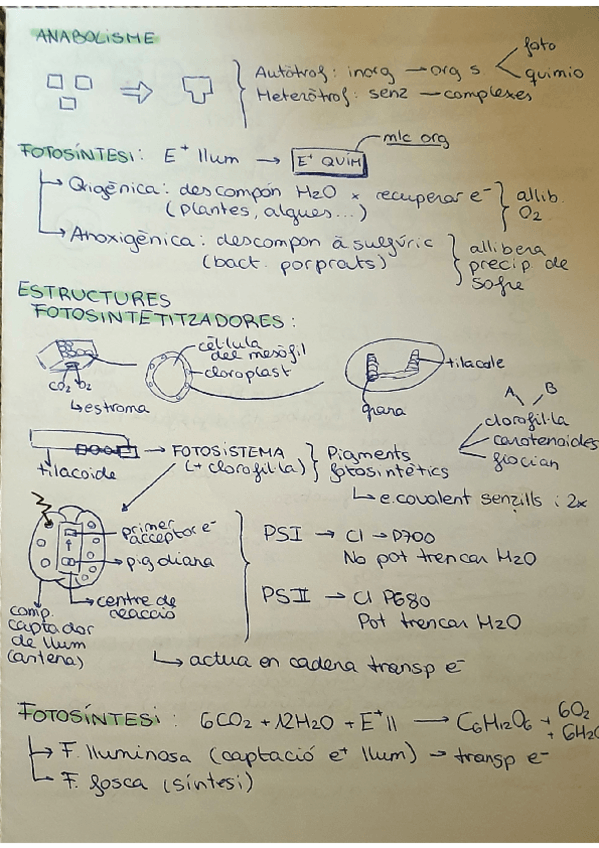 ANABOLISME
foto
Autòtrof: inorg → org s
quimio
Heteròtrof: senz → complexes
mlc org
FOTOSÍNTESI: E+ llum → E+ QUÍM
Oxigènica: descompón H2O x recuperar e- allib.
(plantes, algues...) O2
Anoxigènica: descompon à sulfúric allibera
(bact. porprats) precip de
sofre
ESTRUCTURES
FOTOSINTETITZADORES:
cèl·lula
del mesòfil
cloroplast
tilacoide
CO2 O2
estroma
grana
A B
clorofil·la
carotenoides
ficcian
→ FOTOSISTEMA Pigments
(+ clorofil·la) fotosintètics
tilacoide
e.covalent senzills i 2x
primer
acceptor e-
pig diana
centre de
reacció
comp.
captador
de llum
(antena)
PSI → Cl → P700
No pot trencar H2O
PSII → Cl P680
Pot trencar H2O
actua en cadena transp e-
FOTOSÍNTESI: 6CO2 + 12H2O + E+ ll → C6H12O6 + 6O2
+ 6H2O
F. lluminosa (captació e+ llum) → transp e-
F. fosca (síntesi)